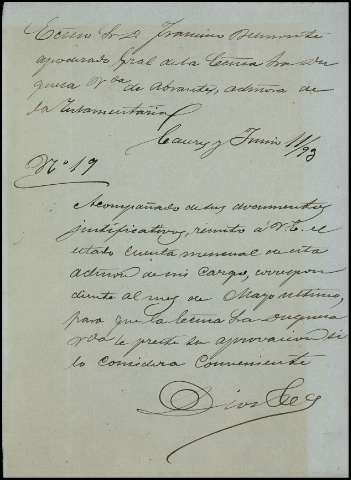 Ecxmo Sr D. Francisco Belmonte
apoderado gral de la Ecxma Sra Du
quesa Vda de Abrantes, admora de
la Testamentaria
Caures y Junio 11/93
Nº 19
Acompañado de sus documentos
justificativos, remito á V.E. el
estado cuenta mensual de esta
admon de mi cargo, correspon
diente al mes de Mayo ultimo,
para que la Ecxma Sra Duquesa
Vda le preste su aprovacion si
lo considera conveniente
Dios &&